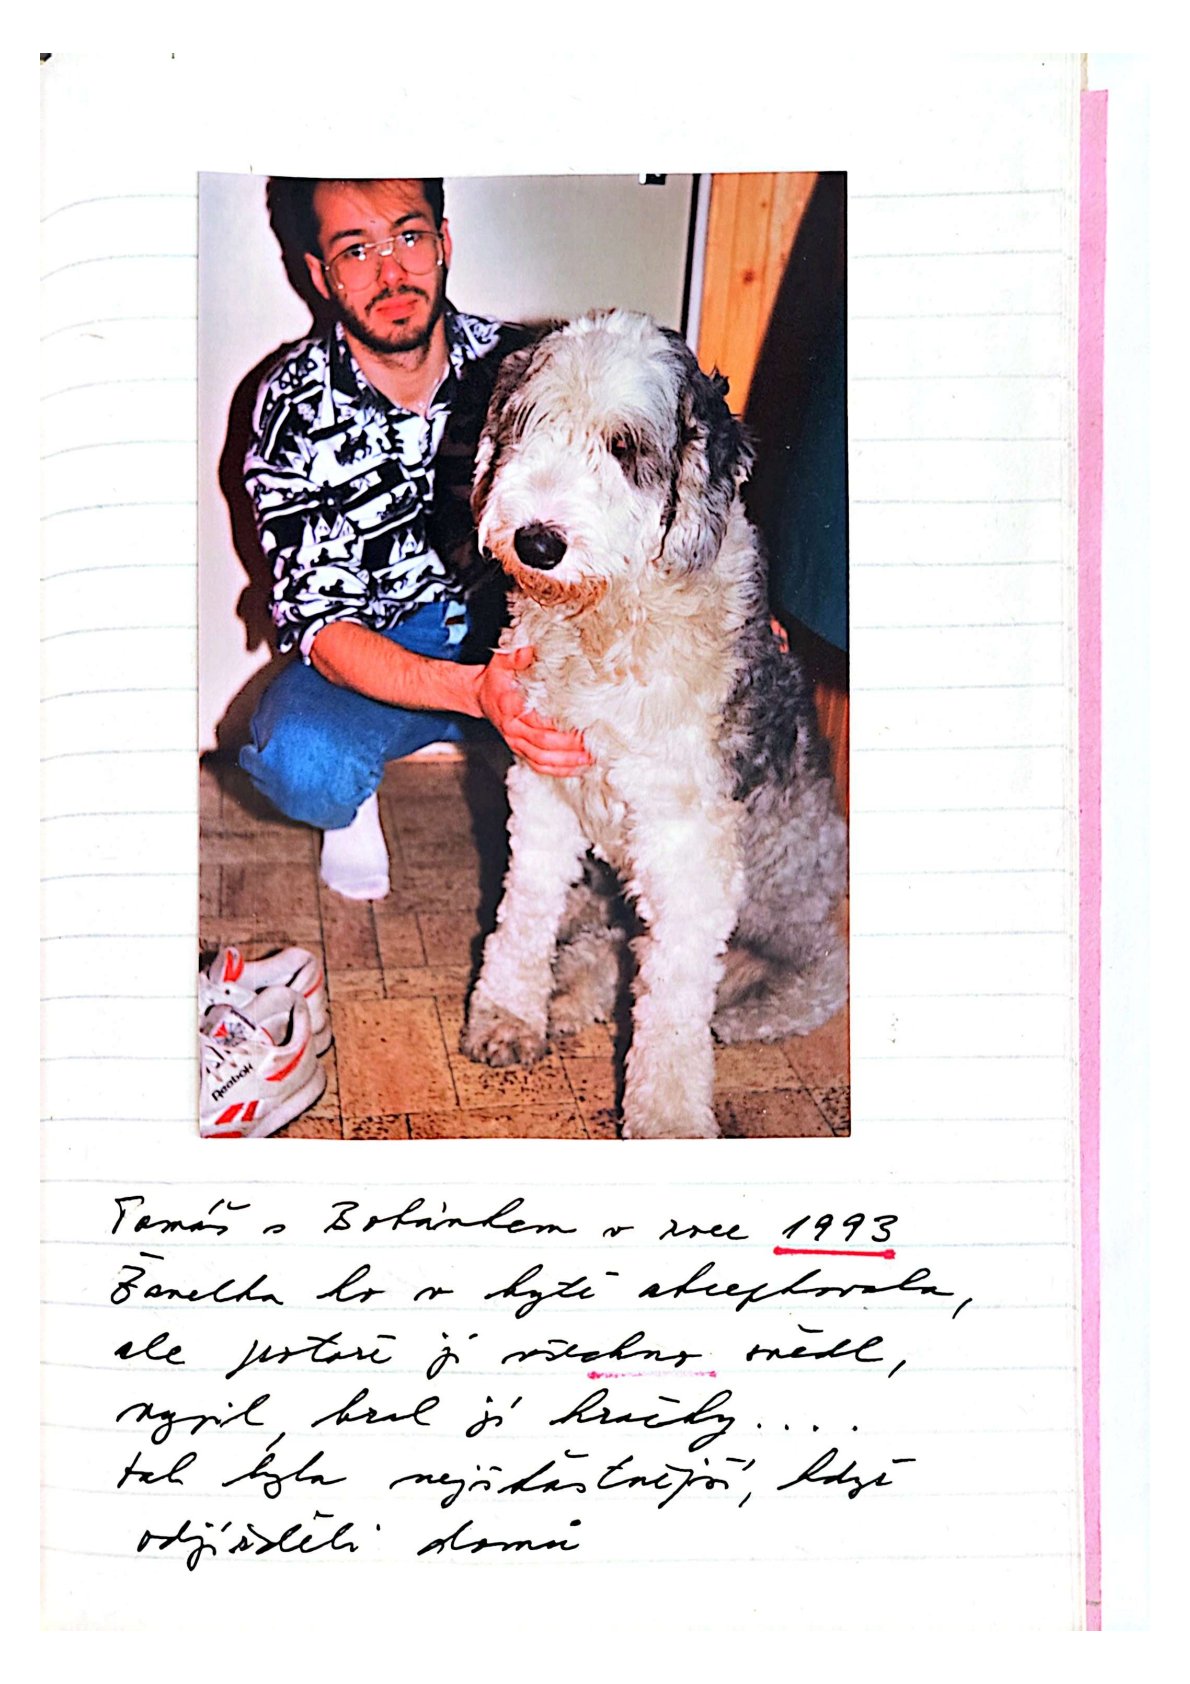 Reebok
Tomáš s Bobánkem v roce 1993
Žanetka ho v bytě akceptovala,
ale protože jí všechno snědl,
vypil, bral jí hračky....
tak byla nejšťastnější, když
odjížděli domů